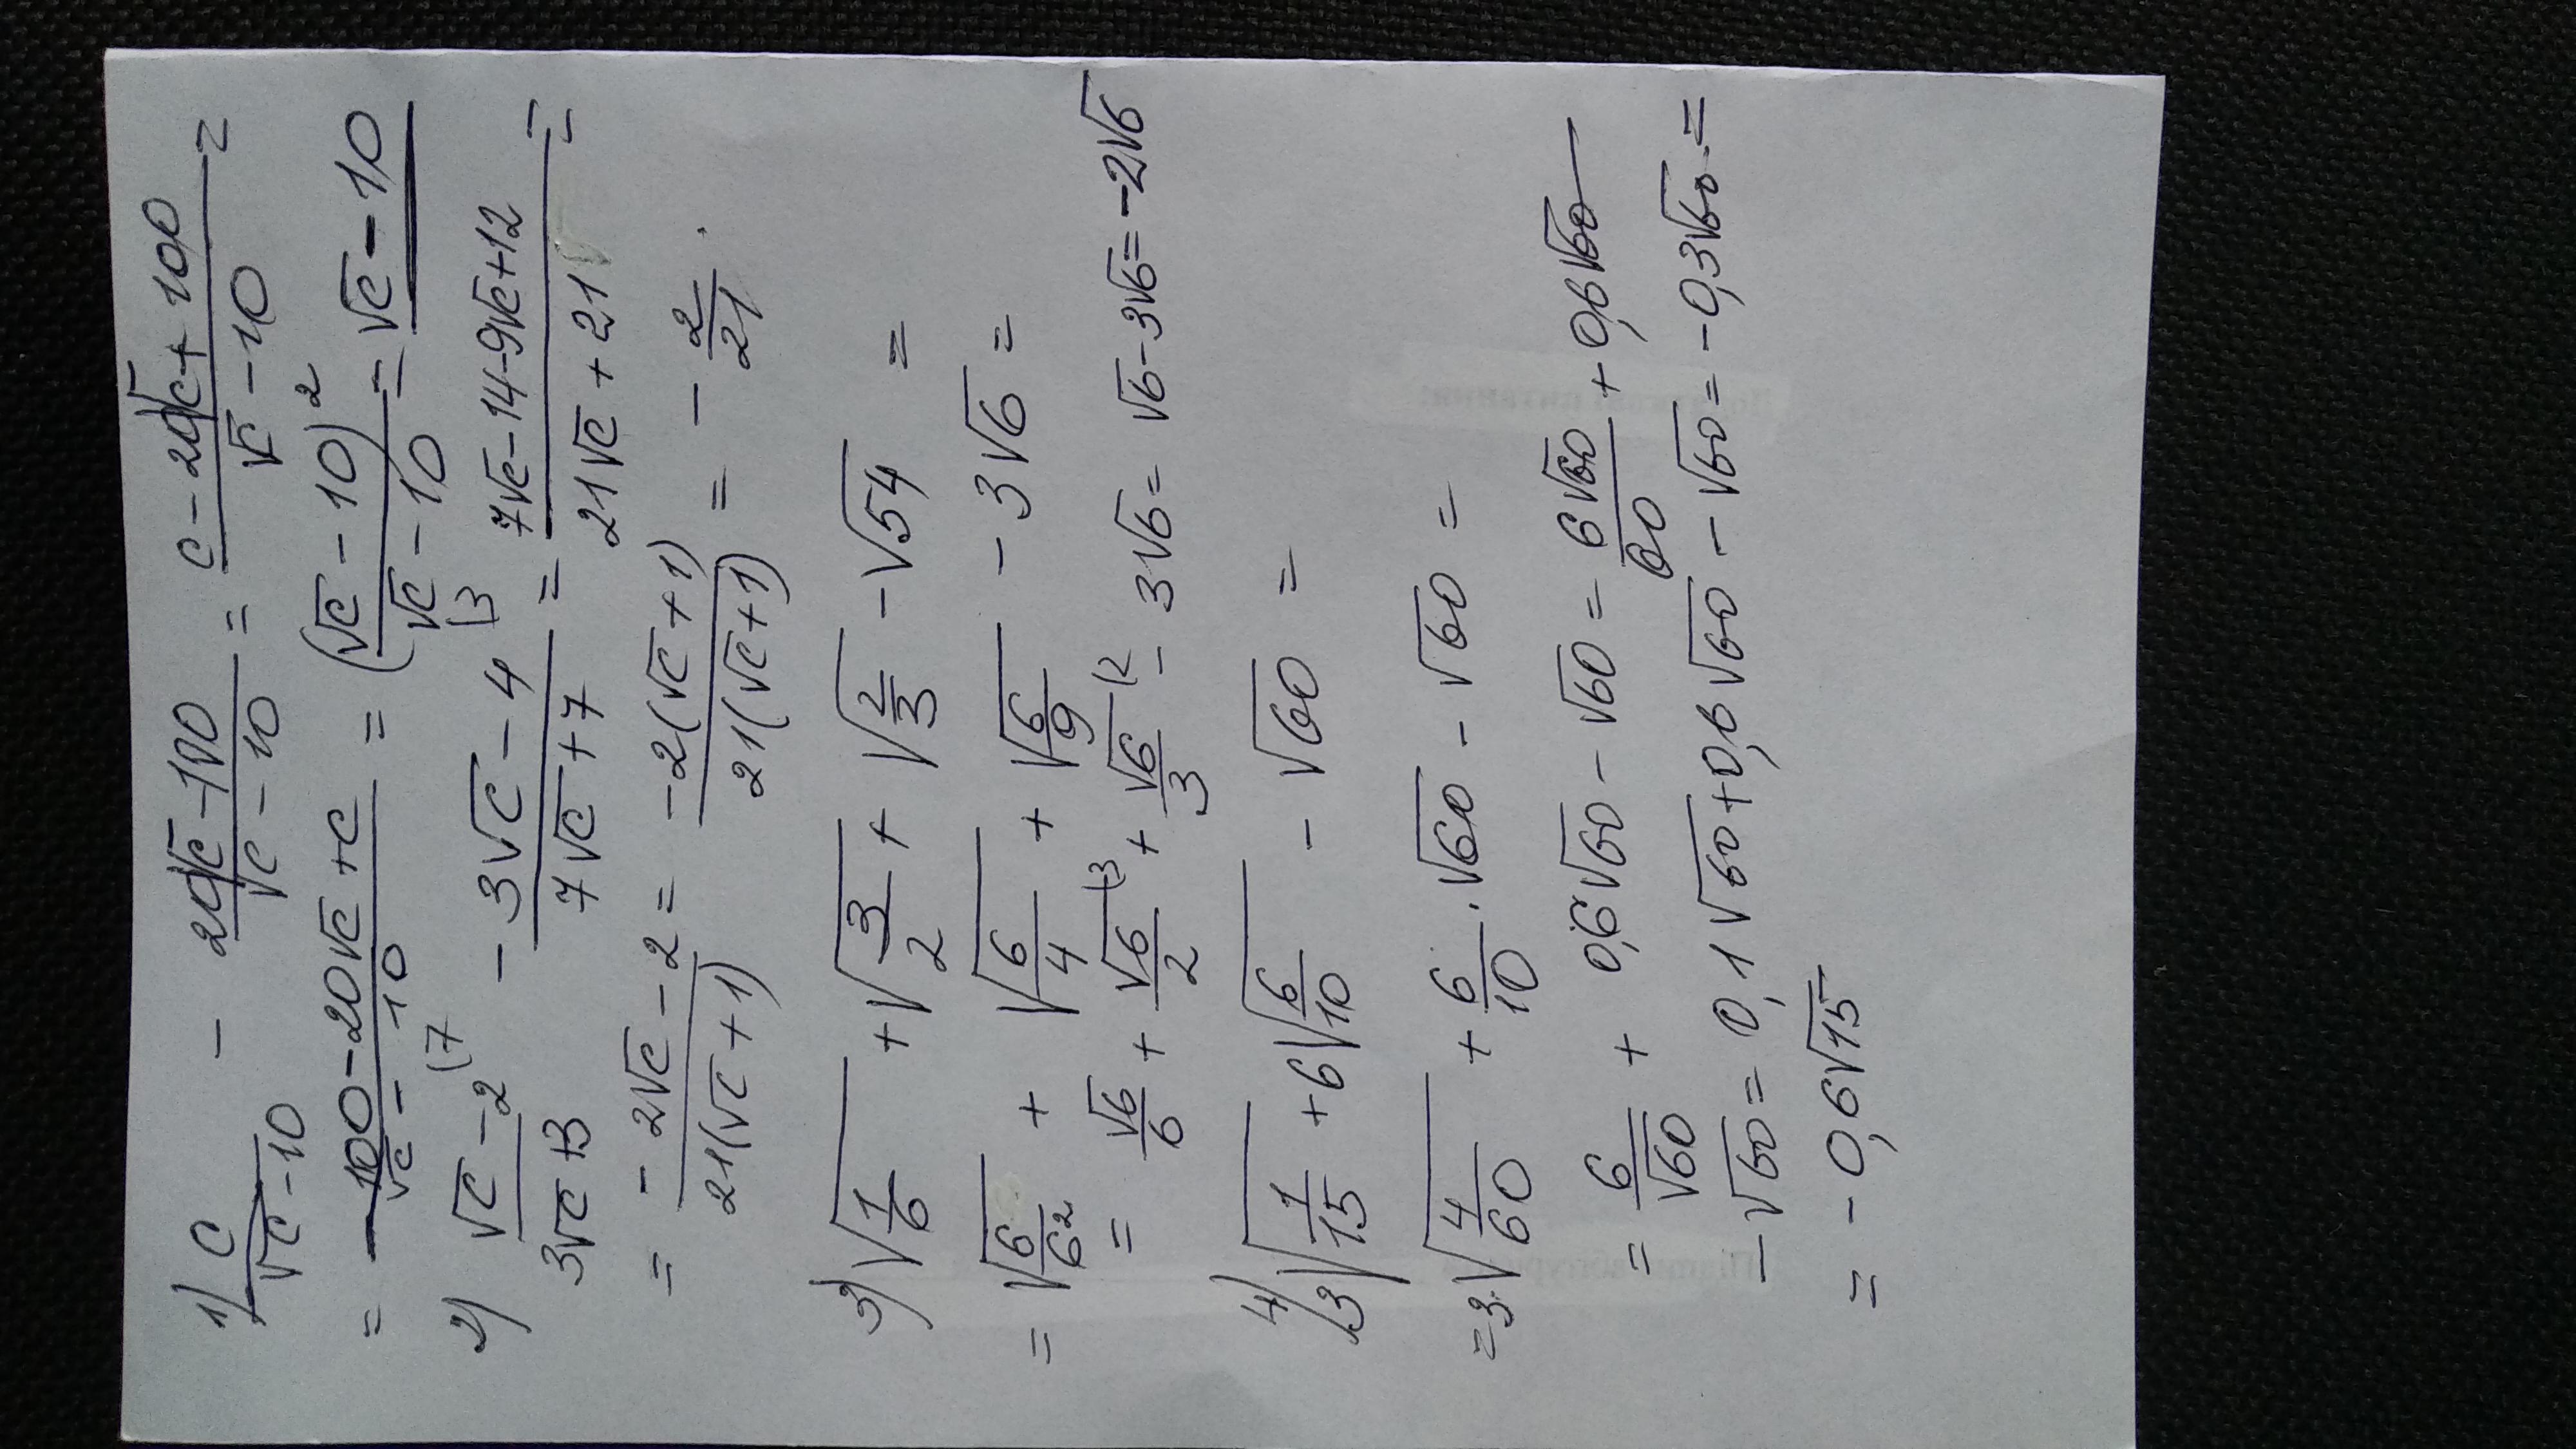 1) c/(√c - 10) - (20√c - 100)/(√c - 10) = (c - 20√c + 100)/(√c - 10) =
= (100 - 20√c + c)/(√c - 10) = (√c - 10)²/(√c - 10) = √c - 10
2) (√c - 2)/(3√c + 3) (7 - (3√c - 4)/(7√c + 7) (3 = (7√c - 14 - 9√c + 12)/(21√c + 21) =
= (-2√c - 2)/(21(√c + 1)) = -2(√c + 1)/(21(√c + 1)) = - 2/21.
3) √(1/6) + √(3/2) + √(2/3) - √54 =
= √(6/6²) + √(6/4) + √(6/9) - 3√6 =
= √6/6 + √6/2 (3 + √6/3 (2 - 3√6 = √6 - 3√6 = -2√6
4) 3√(1/15) + 6√(6/10) - √60 =
= 3·√(4/60) + 6/10 · √60 - √60 =
= 6/√60 + 0,6√60 - √60 = 6√60/60 + 0,6√60
- √60 = 0,1√60 + 0,6√60 - √60 = -0,3√60 =
= -0,6√15